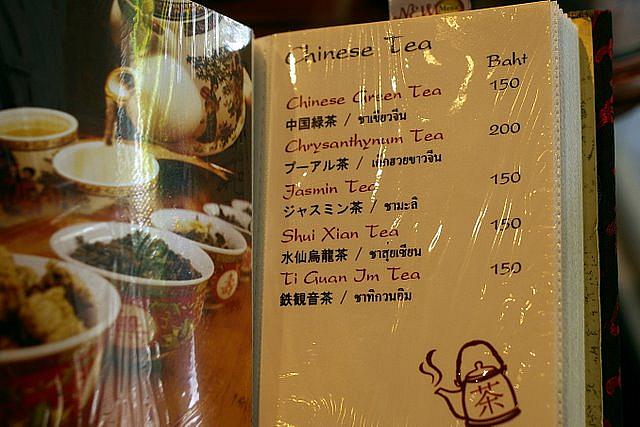 New Menu
Chinese Tea
Baht
Chinese Green Tea 150
中国緑茶 / ชาเขียวจีน
Chrysanthynum Tea 200
プーアル茶 / เก๊กฮวยขาวจีน
Jasmin Tea 150
ジャスミン茶 / ชามะลิ
Shui Xian Tea 150
水仙烏龍茶 / ชาสุ่ยเซียน
Ti Guan Im Tea 150
鉄観音茶 / ชาทิกวนอิม
茶